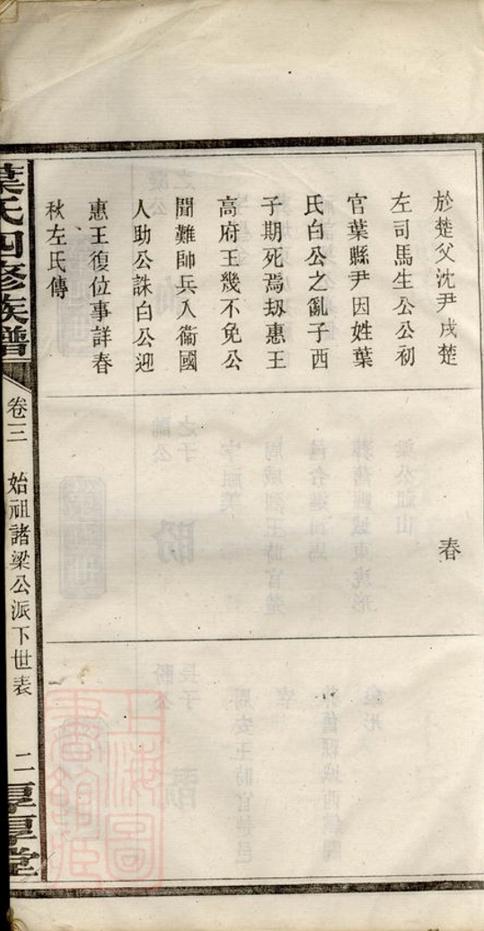 於楚父沈尹戌楚
左司馬生公公初
官葉縣尹因姓葉
氏白公之亂子西
子期死焉刼惠王
高府王幾不免公
聞難帥兵入衞國
人助公誅白公迎
惠王復位事詳春
秋左氏傳
春
葉氏四修族譜
卷三
始祖諸梁公派下世表
二
上海圖書館藏